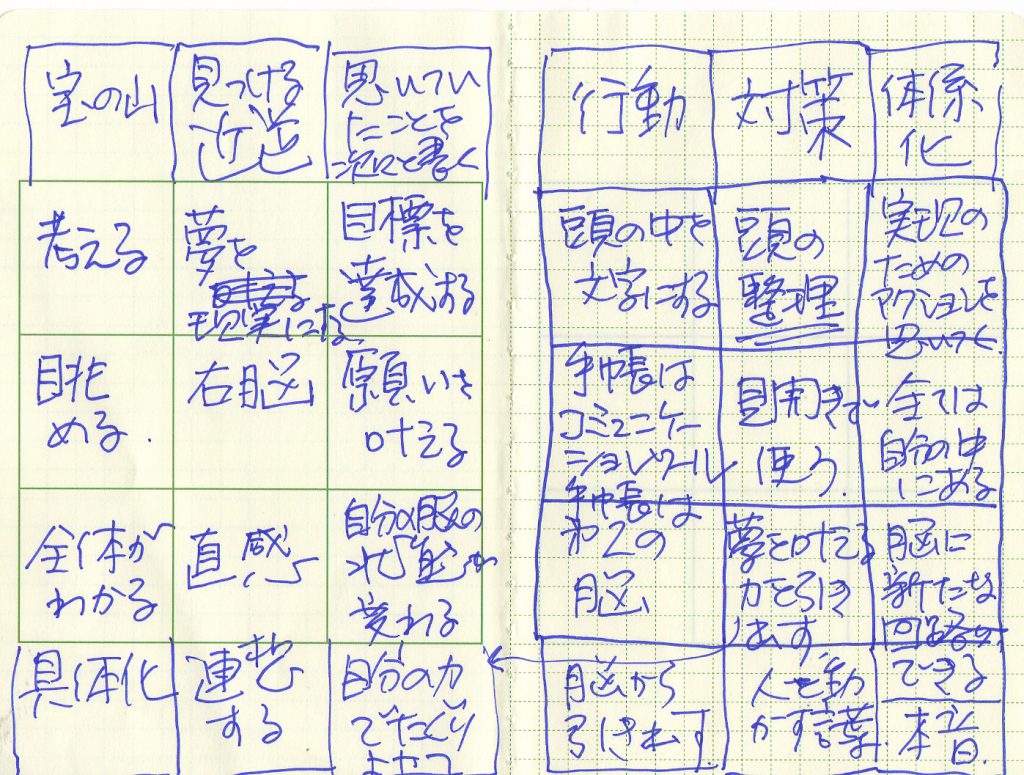 宝の山
見つける
近道
思いつい
たことを
次々と書く
考える
夢を
現実にする
目標を
達成する
眺
める.
右脳
願いを
叶える
全体が
わかる
直感
自分の脳の
状態が
変わる
具体化
連想
する
自分の力
でたぐり
よせて
行動
対策
体系
化
頭の中を
文字にする
頭の
整理
実現の
ための
アクションを
思いつく.
手帳は
コミュニケー
ションツール
見開きで
使う.
全ては
自分の中
にある
手帳は
第2の
脳
夢を叶える
力を引き
出す
脳に
新たな
回路が
できる
脳から
引き出す
人を動
かす言葉.
本音.